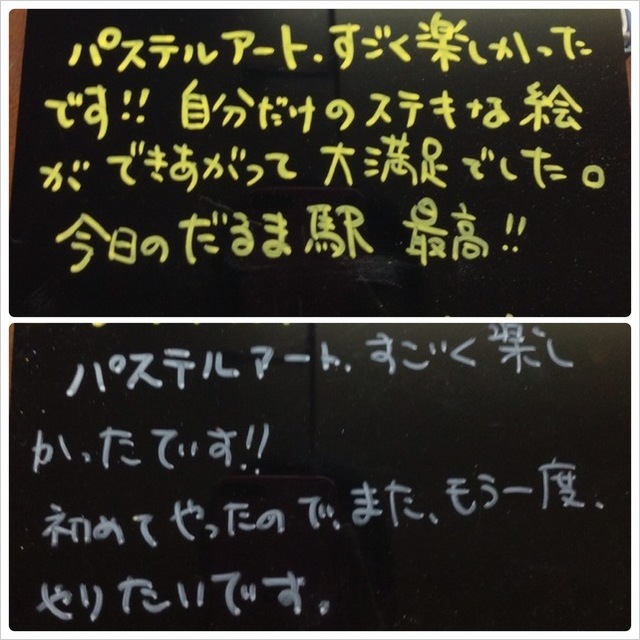 パステルアート、すごく楽しかった
です!! 自分だけのステキな絵
ができあがって 大満足でした。
今日のだるま駅 最高!!
パステルアート、すごく楽し
かったです!!
初めてやったので、また、もう一度、
やりたいです。